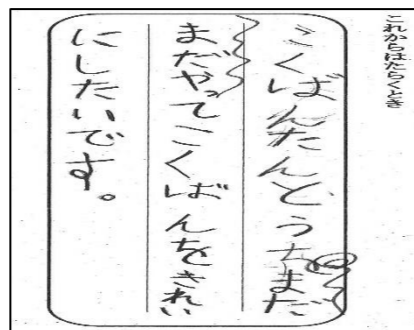 これからはたらくとき
こくばんたんとうもまだ
まだやってこくばんをきれい
にしたいです。